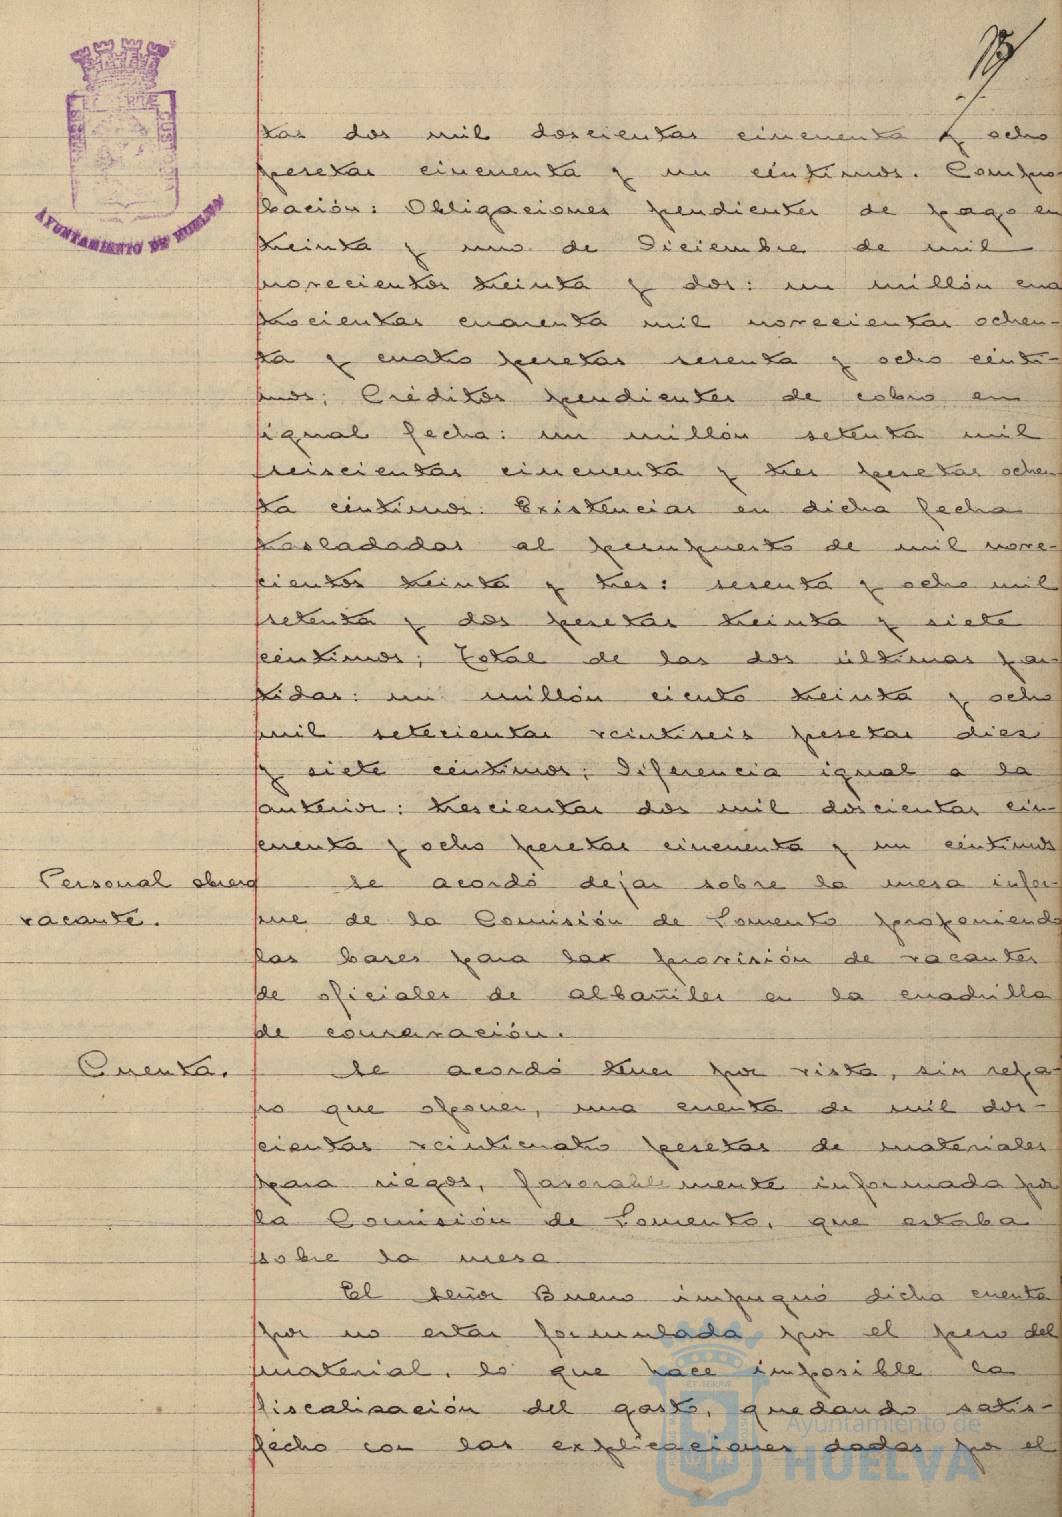 AYUNTAMIENTO DE HUELVA
tas dos mil doscientas cincuenta y ocho
pesetas cincuenta y un céntimos. Compro-
bación: Obligaciones pendientes de pago en
treinta y uno de Diciembre de mil
novecientos treinta y dos: un millón cua
trocientas cuarenta mil novecientas ochen-
ta y cuatro pesetas sesenta y ocho cénti-
mos; Créditos pendientes de cobro en
igual fecha: un millón setenta mil
seiscientas cincuenta y tres pesetas ochen-
ta céntimos: Existencias en dicha fecha
trasladadas al presupuesto de mil nove-
cientos treinta y tres: sesenta y ocho mil
setenta y dos pesetas treinta y siete
céntimos; Total de las dos últimas par-
tidas: un millón ciento treinta y ocho
mil setecientas veintiseis pesetas diez
y siete céntimos; Diferencia igual a la
anterior: trescientas dos mil doscientas cin-
cuenta y ocho pesetas cincuenta y un céntimos
Personal obrero
vacante.
Se acordó dejar sobre la mesa infor-
me de la Comisión de Fomento proponiendo
las bases para la provisión de vacantes
de oficiales de albañiles en la cuadrilla
de conservación.
Cuenta.
Se acordó tener por vista, sin repa-
ro que oponer, una cuenta de mil dos-
cientas veinticuatro pesetas de materiales
para riegos, favorablemente informada por
la Comisión de Fomento, que estaba
sobre la mesa
El señor Bueno impugnó dicha cuenta
por no estar formulada por el peso del
material, lo que hace imposible la
fiscalización del gasto, quedando satis-
fecho con las explicaciones dadas por el
Ayuntamiento de
HUELVA